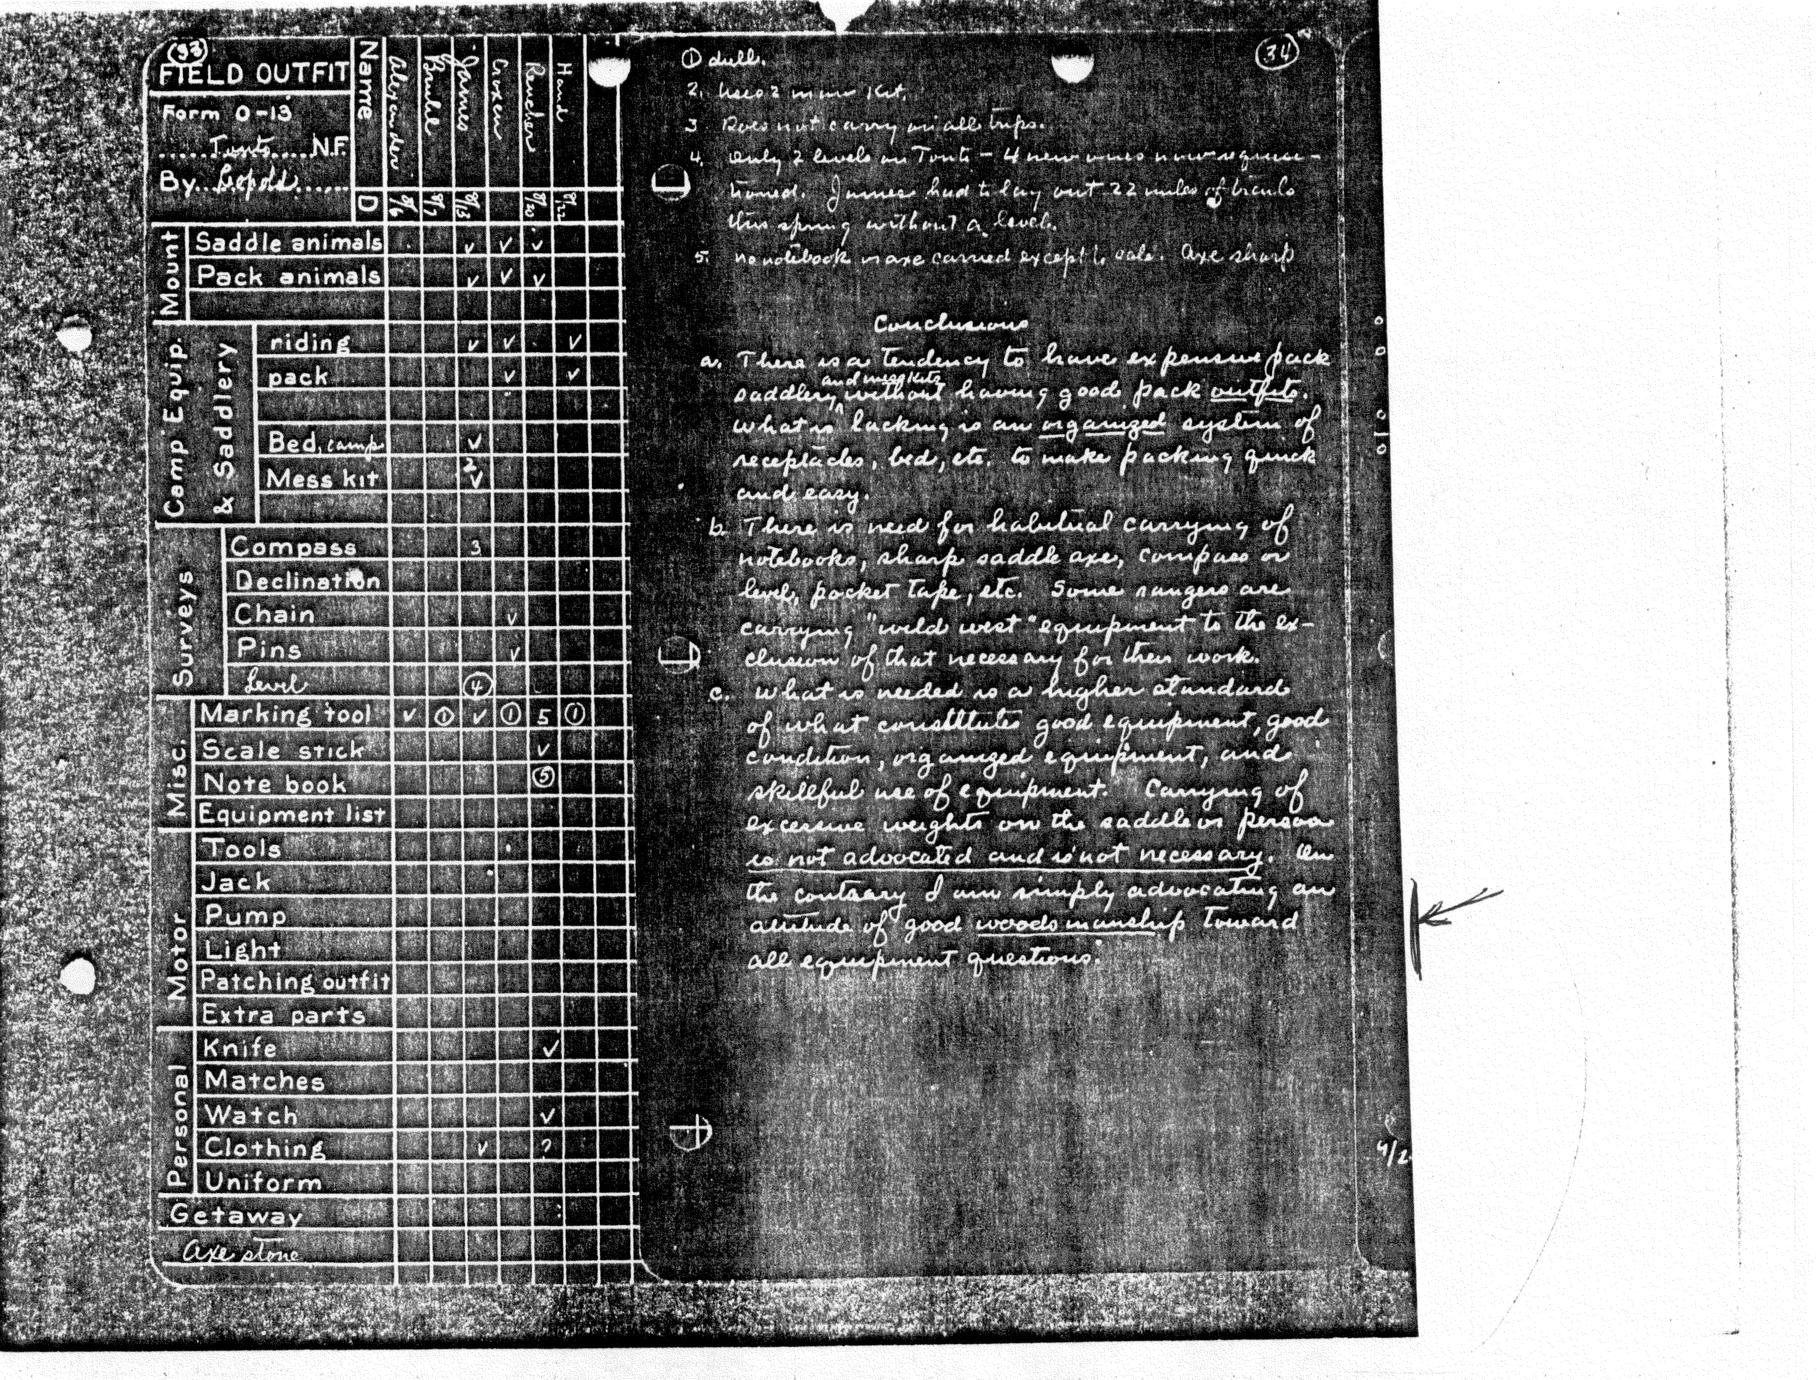 (33)
FIELD OUTFIT
Form O-13
Tonto N.F.
By Leopold
Name
Alexander
Bruhl
James
Croxen
Raucher
Hand
D
8/6
8/7
8/13
8/20
8/22
Mount
Saddle animals ✓ ✓ ✓
Pack animals ✓ ✓ ✓
Camp Equip.
& Saddlery
riding ✓ ✓ ✓
pack ✓ ✓
Bed, camp ✓
Mess kit 2 ✓
Surveys
Compass 3
Declination
Chain ✓
Pins ✓
Level 4
Misc.
Marking tool ✓ 1 ✓ 1 5 1
Scale stick ✓
Note book 5
Equipment list
Motor
Tools
Jack
Pump
Light
Patching outfit
Extra parts
Personal
Knife ✓
Matches
Watch ✓
Clothing ✓ ?
Uniform
Getaway
Axe stone
(34)
1 dull.
2. Uses 2 man kit.
3 Does not carry on all trips.
4. Only 2 levels on Tonto – 4 new ones now requisi-
tioned. James had to lay out 22 miles of trails
this spring without a level.
5. No notebook or axe carried except to sale. Axe sharp
Conclusions
a. There is a tendency to have expensive pack
saddlery and mess kits without having good pack outfits.
What is lacking is an organized system of
receptacles, bed, etc. to make packing quick
and easy.
b. There is need for habitual carrying of
notebooks, sharp saddle axe, compass or
level, pocket tape, etc. Some rangers are
carrying "wild west" equipment to the ex-
clusion of that necessary for their work.
c. What is needed is a higher standard
of what constitutes good equipment, good
condition, organized equipment, and
skillful use of equipment. Carrying of
excessive weights on the saddle or person
is not advocated and is not necessary. On
the contrary I am simply advocating an
attitude of good woodsmanship toward
all equipment questions.
4/2